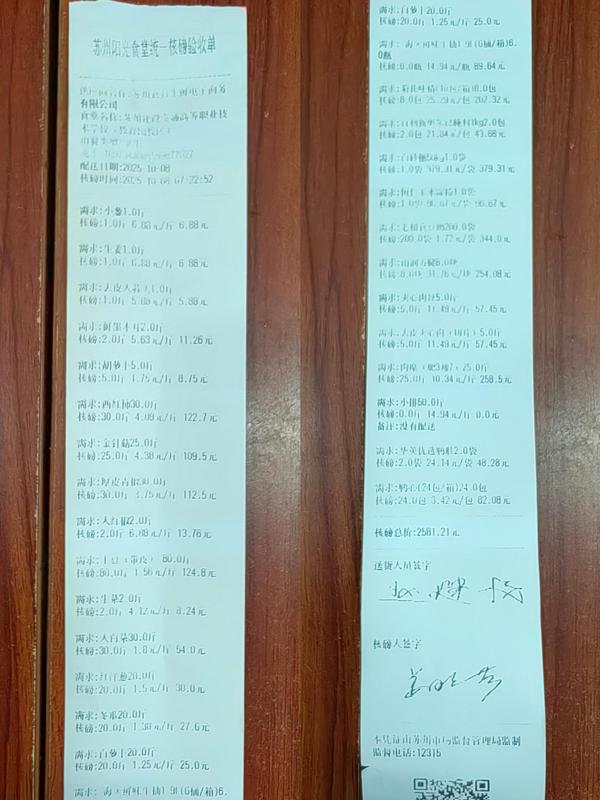 苏州阳光食堂统一核磅验收单
有限公司
配送日期:2025-10-08
核磅时间:2025-10-08 07:22:52
需求:小葱1.0斤
核磅:1.0斤 6.88元/斤 6.88元
需求:生姜1.0斤
核磅:1.0斤 6.88元/斤 6.88元
需求:去皮大蒜子1.0斤
核磅:1.0斤 5.88元/斤 5.88元
需求:鲜黑木耳2.0斤
核磅:2.0斤 5.63元/斤 11.26元
需求:胡萝卜5.0斤
核磅:5.0斤 1.75元/斤 8.75元
需求:西红柿30.0斤
核磅:30.0斤 4.09元/斤 122.7元
需求:金针菇25.0斤
核磅:25.0斤 4.38元/斤 109.5元
需求:厚皮青椒30.0斤
核磅:30.0斤 3.75元/斤 112.5元
需求:大红椒2.0斤
核磅:2.0斤 6.88元/斤 13.76元
需求:土豆(带皮) 80.0斤
核磅:80.0斤 1.56元/斤 124.8元
需求:生菜2.0斤
核磅:2.0斤 4.12元/斤 8.24元
需求:大白菜30.0斤
核磅:30.0斤 1.8元/斤 54.0元
需求:红洋葱20.0斤
核磅:20.0斤 1.5元/斤 30.0元
需求:冬瓜20.0斤
核磅:20.0斤 1.38元/斤 27.6元
需求:白萝卜20.0斤
核磅:20.0斤 1.25元/斤 25.0元
需求:
需求:白萝卜20.0斤
核磅:20.0斤 1.25元/斤 25.0元
需求: 1.9l(6桶/箱)6.
0瓶
核磅:6.0瓶 14.94元/瓶 89.64元
核磅:8.0包 25.29元/包 202.32元
核磅:2.0包 21.84元/包 43.68元
需求:白砂糖50kg1.0袋
核磅:1.0袋 379.31元/袋 379.31元
核磅:1.0袋 96.67元/袋 96.67元
核磅:200.0袋 1.72元/袋 344.0元
核磅:8.0块 31.76元/块 254.08元
需求:夹心肉丝5.0斤
核磅:5.0斤 11.49元/斤 57.45元
需求:去皮夹心肉(切片) 5.0斤
核磅:5.0斤 11.49元/斤 57.45元
需求:肉糜(肥3瘦7) 25.0斤
核磅:25.0斤 10.34元/斤 258.5元
需求:小排50.0斤
核磅:0.0斤 14.94元/斤 0.0元
备注:没有配送
需求:华英优选鸭胗2.0袋
核磅:2.0袋 24.14元/袋 48.28元
需求:鸭心(24包/箱)24.0包
核磅:24.0包 3.42元/包 82.08元
核磅总价:2581.21元
送货人员签字
核磅人签字
本凭证由苏州市市场监督管理局监制
监督电话:12315